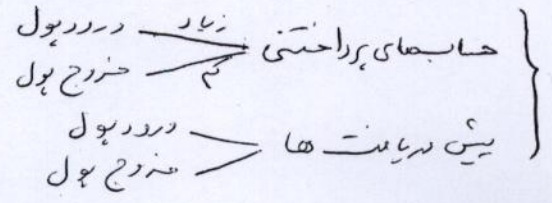 حسابهای پرداختنی زیاد ورود پول
کم خروج پول
پیش دریافت ها ورود پول
خروج پول